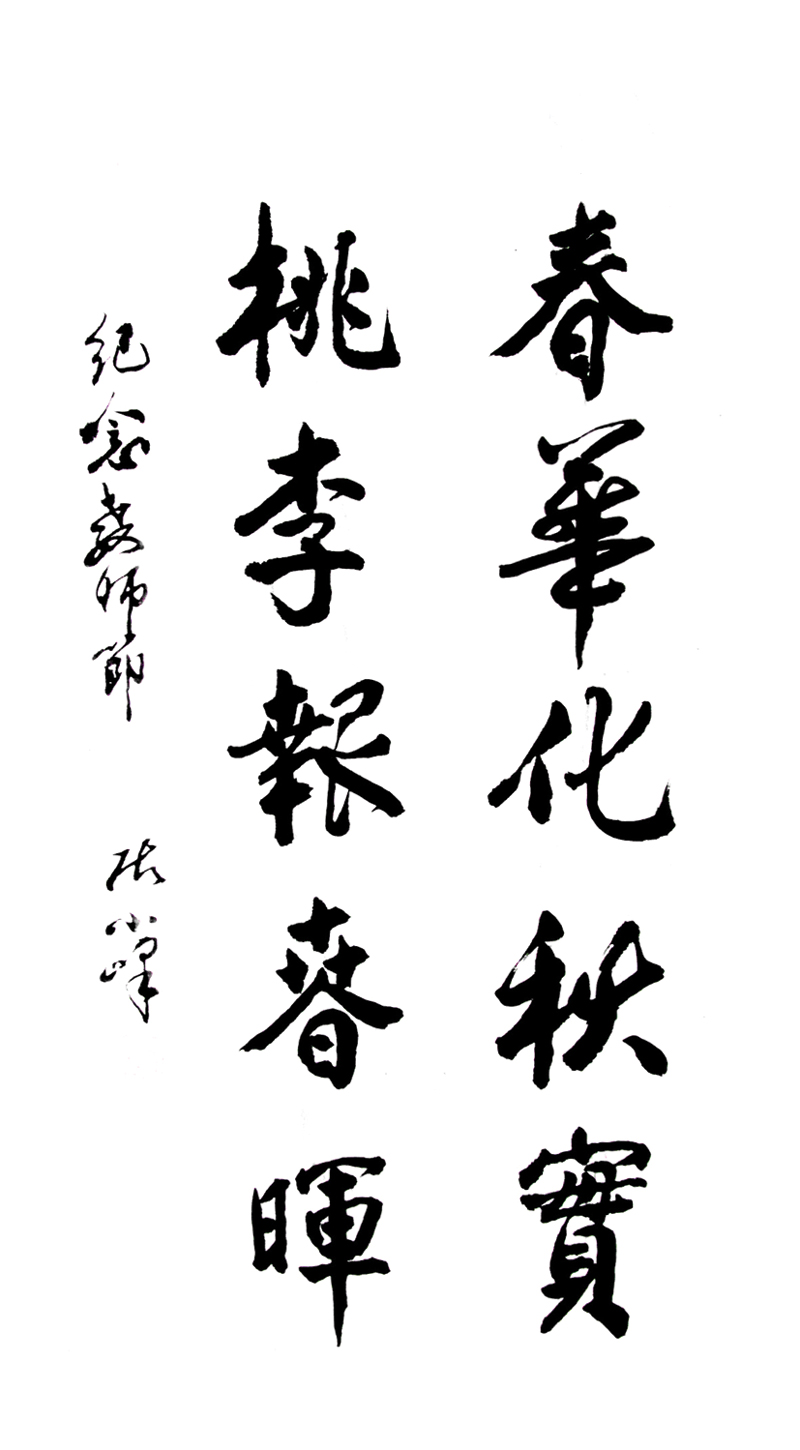 春華化秋實
桃李報春暉
纪念教师節
張小峰